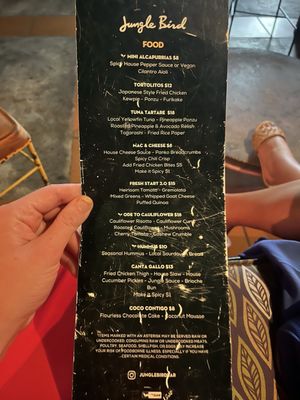 Jungle Bird
FOOD
MINI ALCAPURRIAS $8
Spicy House Pepper Sauce or Vegan
Cilantro Aioli
TORTOLITOS $12
Japanese Style Fried Chicken
Kewpie - Ponzu - Furikake
TUNA TARTARE $18
Local Yellowfin Tuna - Pineapple Ponzu
Roasted Pineapple & Avocado Relish
Togarashi - Fried Rice Paper
MAC & CHEESE $8
House Cheese Sauce - Panko Breadcrumbs
Spicy Chili Crisp
Add Fried Chicken Bites $5
Make it Spicy $1
FRESH START 2.0 $15
Heirloom Tomato - Gremolata
Mixed Greens - Whipped Goat Cheese
Puffed Quinoa
ODE TO CAULIFLOWER $18
Cauliflower Risotto - Cauliflower
Roasted Cauliflower - Mushrooms
Cherry Tomato - Cashew Crumble
HUMMUS $10
Seasonal Hummus - Local Sourdough Bread
CANTA GALLO $13
Fried Chicken Thigh - House Slaw - House
Cucumber Pickles - Jungle Sauce - Brioche
Bun
Make it Spicy $1
COCO CONTIGO $8
Flourless Chocolate Cake - Coconut Mousse
ITEMS MARKED WITH AN ASTERISK MAY BE SERVED RAW OR
UNDERCOOKED. CONSUMING RAW OR UNDERCOOKED MEATS,
POULTRY, SEAFOOD, SHELLFISH, OR EGGS MAY INCREASE
YOUR RISK OF FOODBORNE ILLNESS, ESPECIALLY IF YOU HAVE
CERTAIN MEDICAL CONDITIONS.